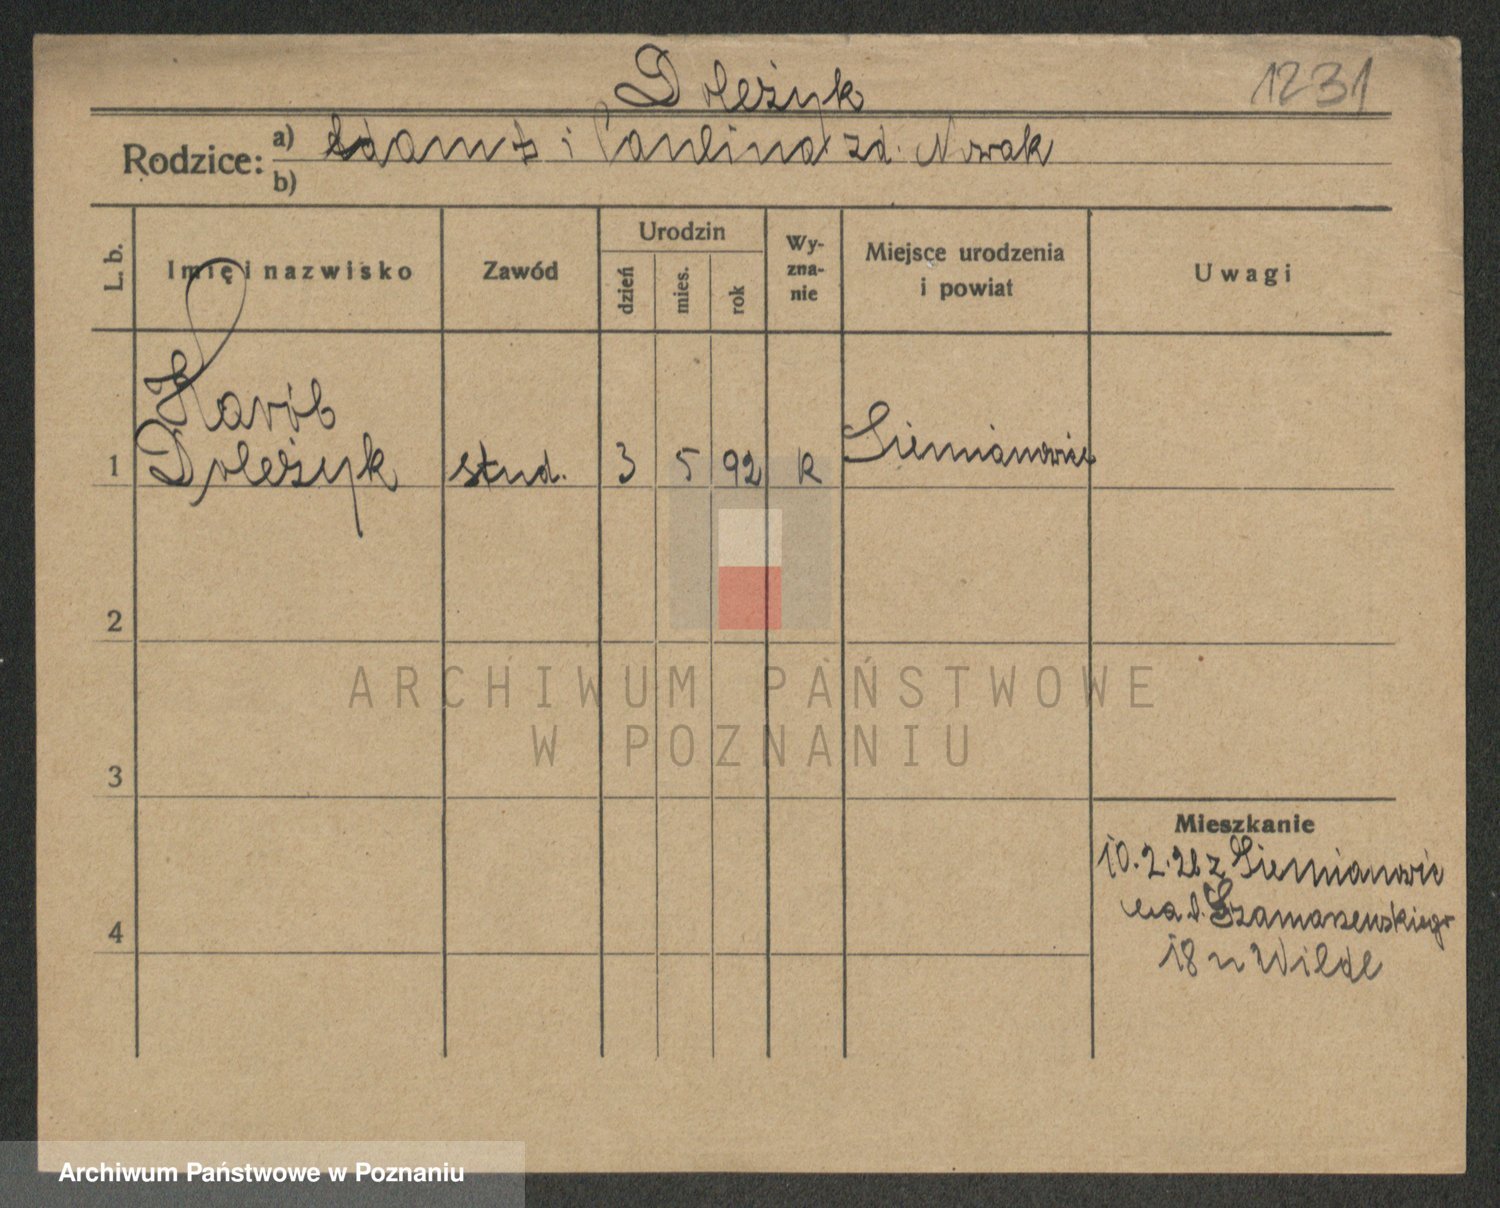 Doleżyk
1231
Rodzice: a) Adam i Paulina zd. Nowak
b)
L. b.
Imię i nazwisko
Zawód
Urodzin
dzień
mies.
rok
Wy-
zna-
nie
Miejsce urodzenia
i powiat
Uwagi
Karól
1 Doleżyk stud. 3 5 92 k Siemianowice
2
ARCHIWUM PAŃSTWOWE
W POZNANIU
3
Mieszkanie
10.2.26 z Siemianowic
Szamarzewskiego
4
18 Wilde
Archiwum Państwowe w Poznaniu